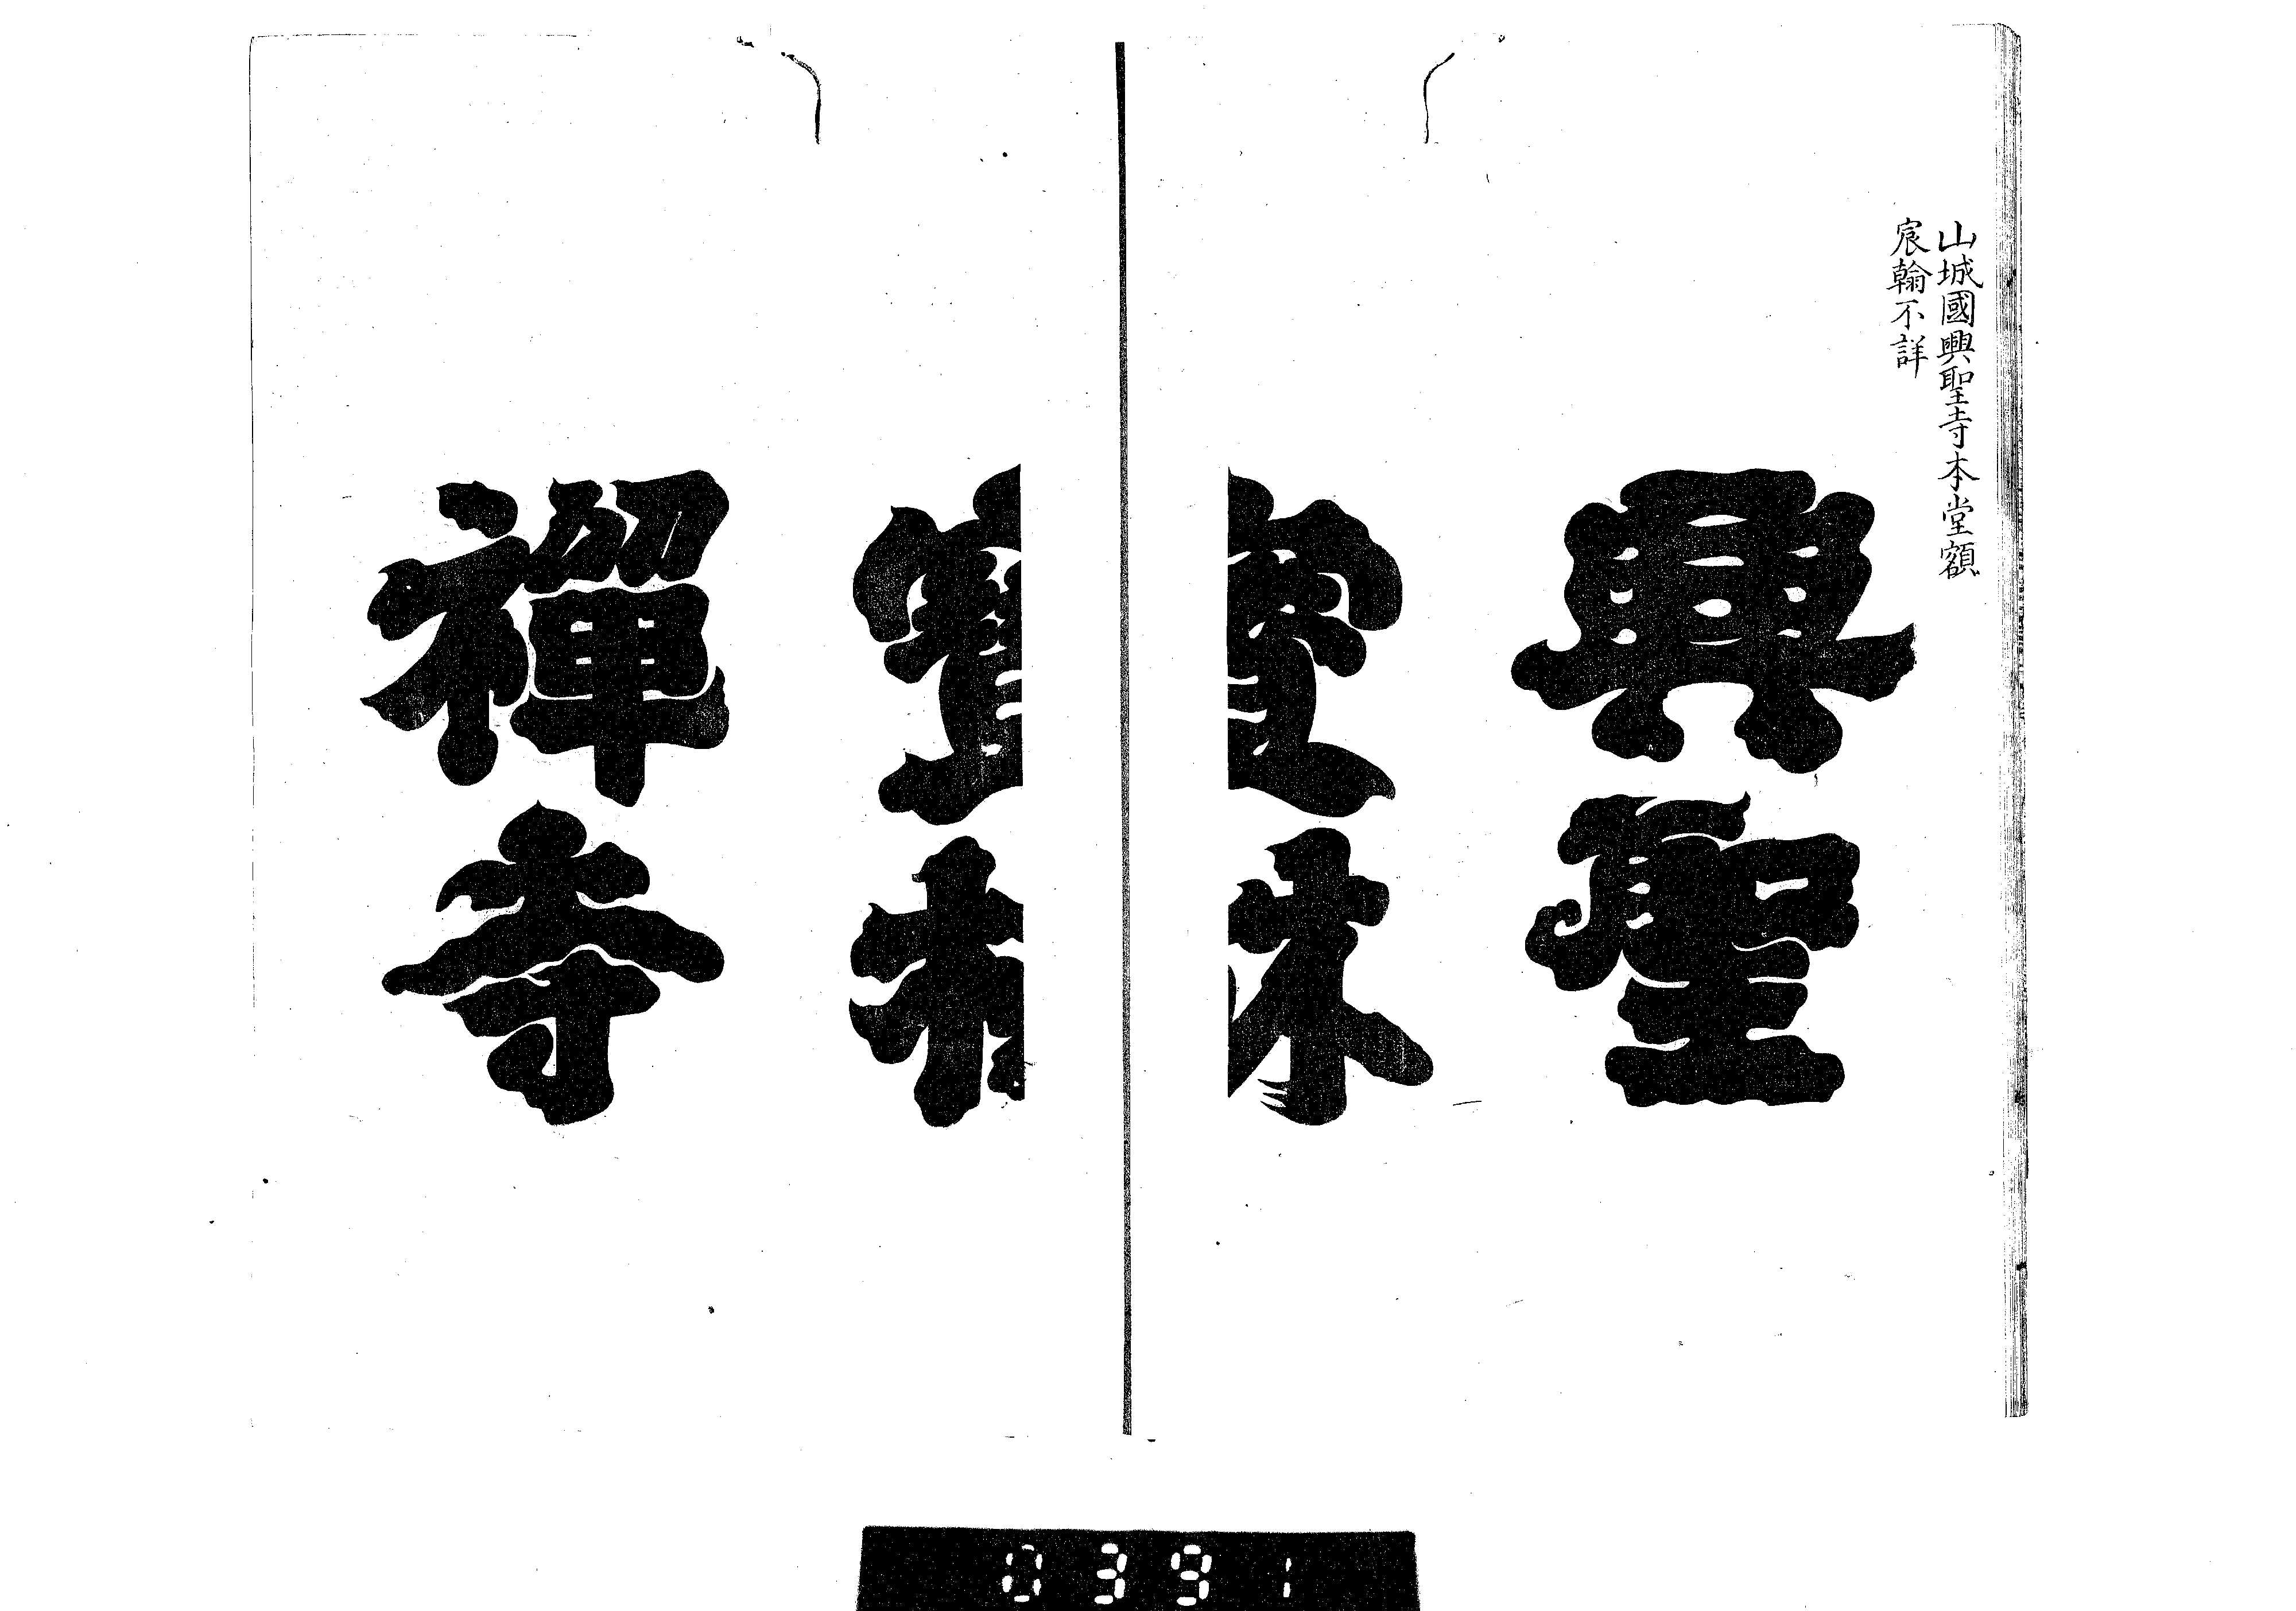 山城國興聖寺本堂額
宸翰不詳
興聖
寶林
禪寺
0391